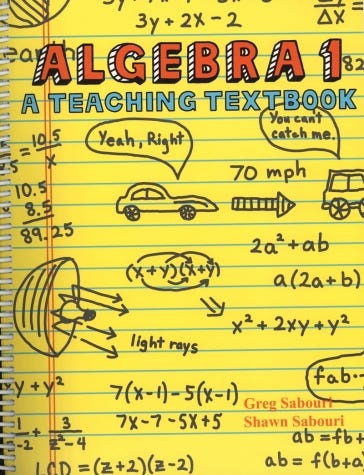 3y + 2x - 2
Δx =
earth
ALGEBRA 1
A TEACHING TEXTBOOK
82
You can't
catch me.
Yeah, Right
5 = 10.5
x
70 mph
10.5
8.5
89.25
2a² + ab
(x+y)(x+y)
a(2a+b)
x² + 2xy + y²
light rays
fab..
xy + y²
7(x-1)-5(x-1)
Greg Sabouri
7x-7-5x+5
Shawn Sabouri
1
-2
+
3
z²-4
ab = fb+
LCD = (z+2)(z-2)
ab = f(b+a